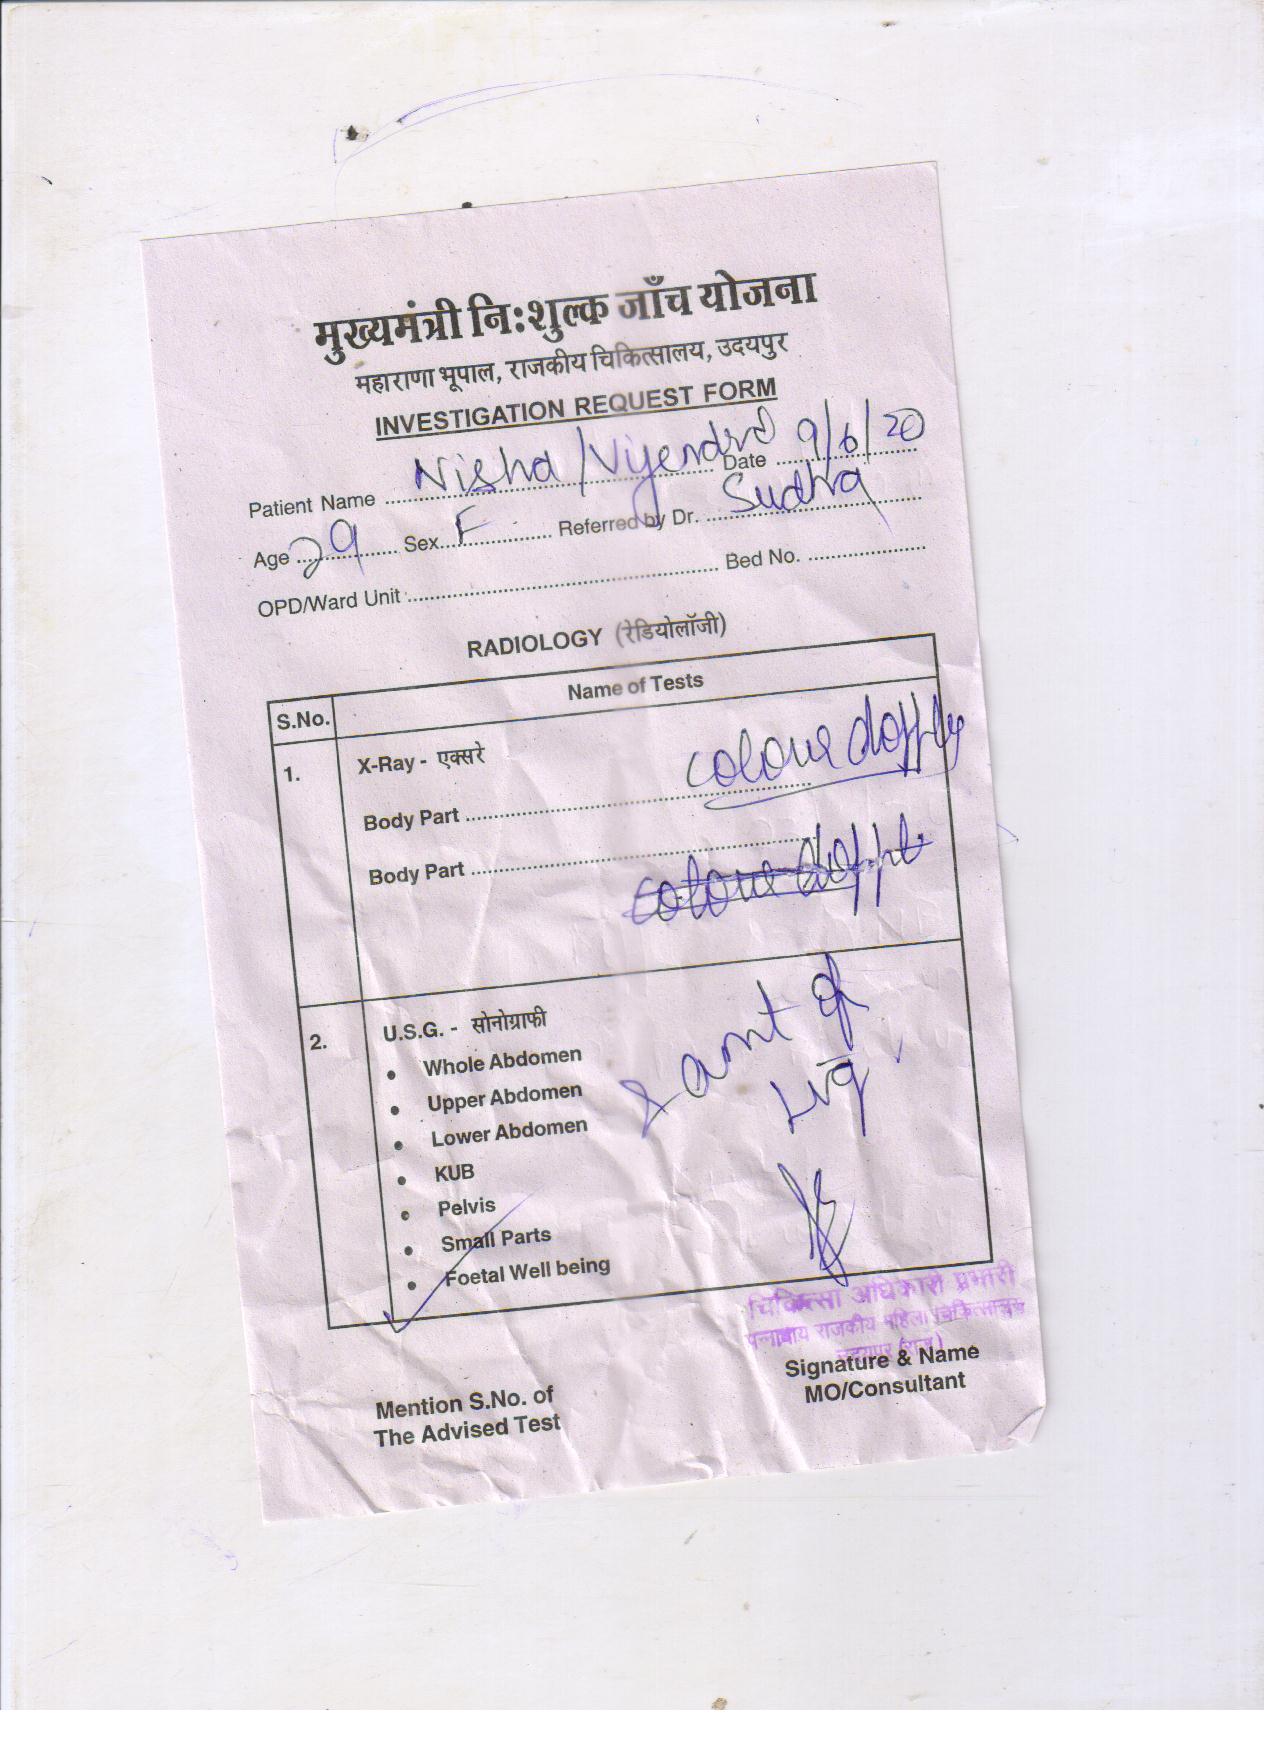 मुख्यमंत्री निःशुल्क जाँच योजना
महाराणा भूपाल, राजकीय चिकित्सालय, उदयपुर
INVESTIGATION REQUEST FORM
Patient Name Nisha / Vijendra Date 9/6/20
Age 29 Sex F Referred by Dr. Sudha
OPD/Ward Unit Bed No.
RADIOLOGY (रेडियोलॉजी)
S.No. Name of Tests
1. X-Ray - एक्सरे colour
Body Part
Body Part
colour
2. U.S.G. - सोनोग्राफी
• Whole Abdomen
• Upper Abdomen
• Lower Abdomen
• KUB
• Pelvis
• Small Parts
• Foetal Well being
& amt of
Liq
चिकित्सा अधिकारी प्रभारी
पन्नाधाय राजकीय महिला चिकित्सालय
उदयपुर (राज.)
Signature & Name
MO/Consultant
Mention S.No. of
The Advised Test